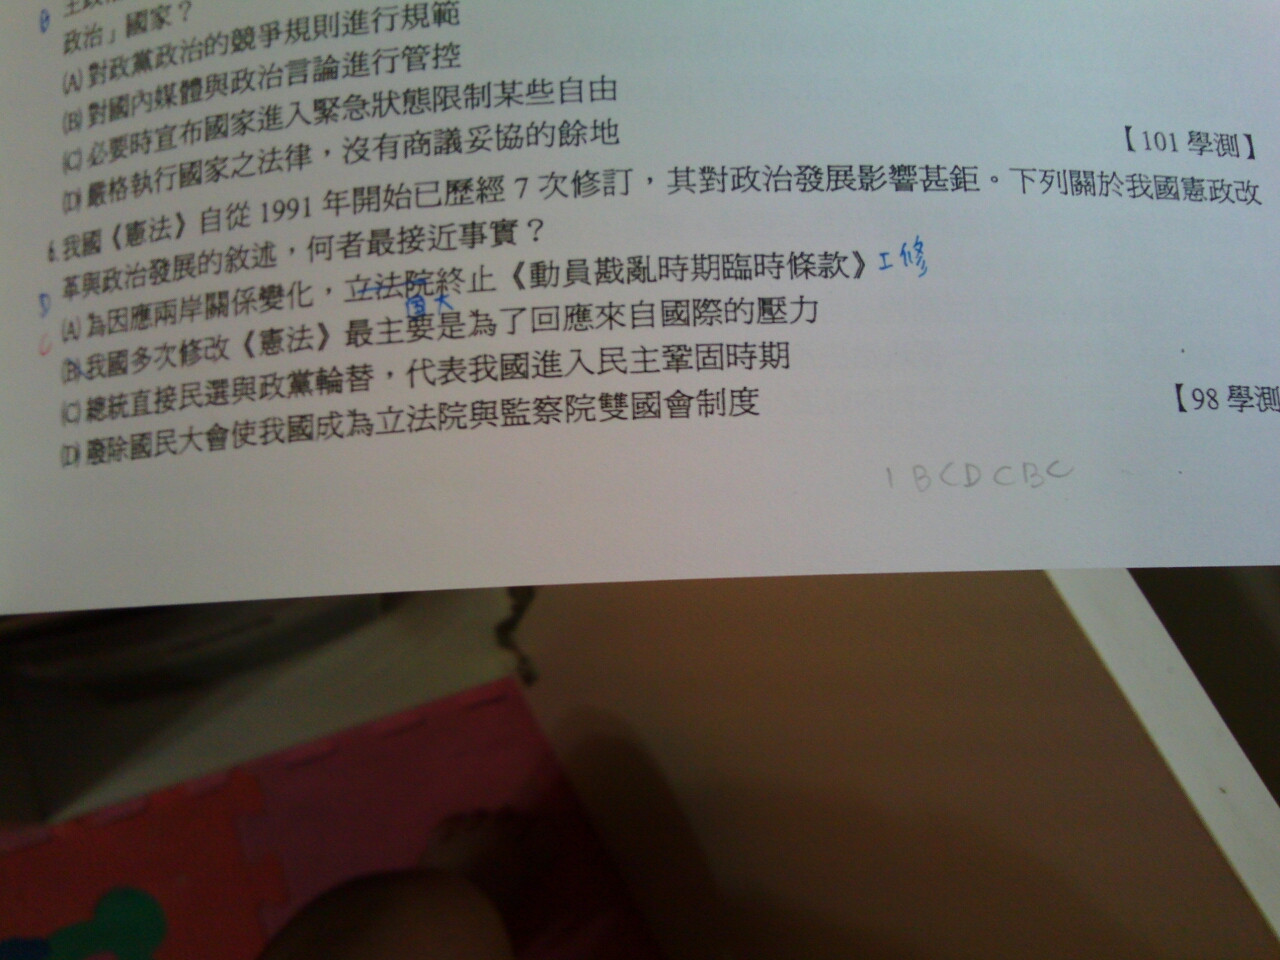 政治」國家？
(A) 對政黨政治的競爭規則進行規範
(B) 對國內媒體與政治言論進行管控
(C) 必要時宣布國家進入緊急狀態限制某些自由
(D) 嚴格執行國家之法律，沒有商議妥協的餘地
【101 學測】
6. 我國《憲法》自從 1991 年開始已歷經 7 次修訂，其對政治發展影響甚鉅。下列關於我國憲政改
革與政治發展的敘述，何者最接近事實？
D
(A) 為因應兩岸關係變化，立法院終止《動員戡亂時期臨時條款》
國大
C
(B) 我國多次修改《憲法》最主要是為了回應來自國際的壓力
(C) 總統直接民選與政黨輪替，代表我國進入民主鞏固時期
(D) 廢除國民大會使我國成為立法院與監察院雙國會制度
【98 學測
1 BCDCBC